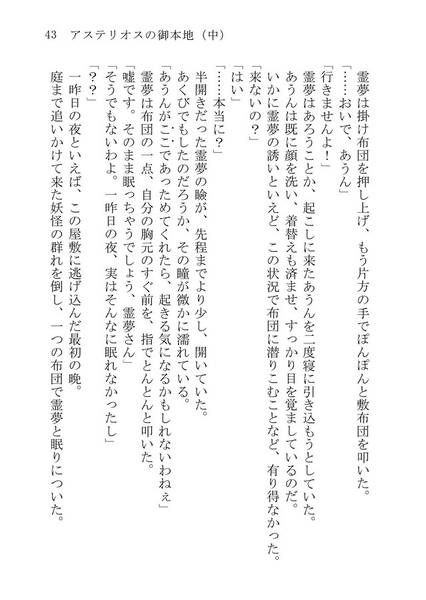 43　アステリオスの御本地（中）
　霊夢は掛け布団を押し上げ、もう片方の手でぽんぽんと敷布団を叩いた。
「……おいで、あうん」
「行きませんよ！」
　霊夢はあろうことか、起こしに来たあうんを二度寝に引き込もうとしていた。
　あうんは既に顔を洗い、着替えも済ませ、すっかり目を覚ましているのだ。
　いかに霊夢の誘いといえど、この状況で布団に潜りこむことなど、有り得なかった。
「来ないの？」
「はい」
「……本当に？」
　半開きだった霊夢の瞼が、先程までより少し、開いていた。
　あくびでもしたのだろうか、その瞳が微かに濡れている。
「あうんがここであっためてくれたら、起きる気になるかもしれないわねぇ」
　霊夢は布団の一点、自分の胸元のすぐ前を、指でとんとんと叩いた。
「嘘です。そのまま眠っちゃうでしょう、霊夢さん」
「そうでもないわよ。一昨日の夜、実はそんなに眠れなかったし」
「？？」
　一昨日の夜といえば、この屋敷に逃げ込んだ最初の晩。
　庭まで追いかけて来た妖怪の群れを倒し、一つの布団で霊夢と眠りについた。